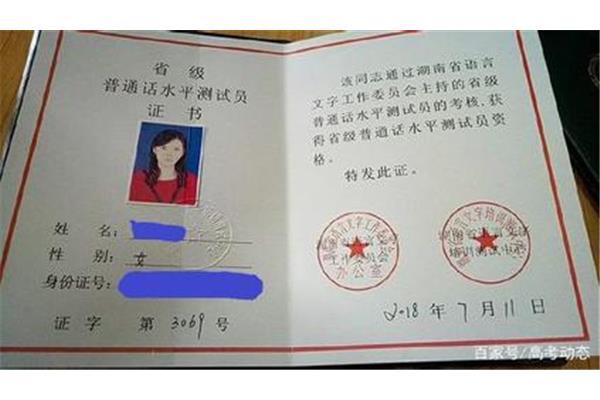 省级
普通话水平测试员
证书
姓名:
性别: 女
身份证号:
证字 第 3069 号
该同志通过湖南省语言
文字工作委员会主持的省级
普通话水平测试员的考核,获
得省级普通话水平测试员资
格。
特发此证。
工作委员会
办公室
培训测试中心
2018 年 7 月 11 日
百家号/高考动态